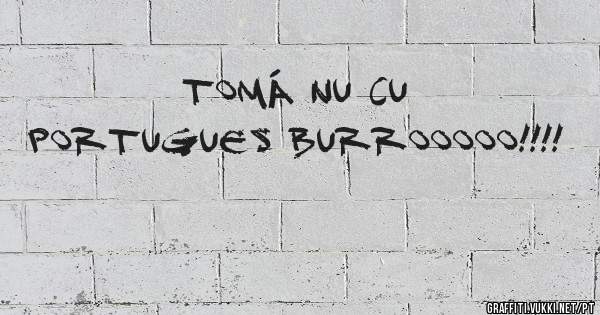 TOMÁ NU CU
PORTUGUES BURROOOOO!!!!
GRAFFITI.YUKKI.NET/PT